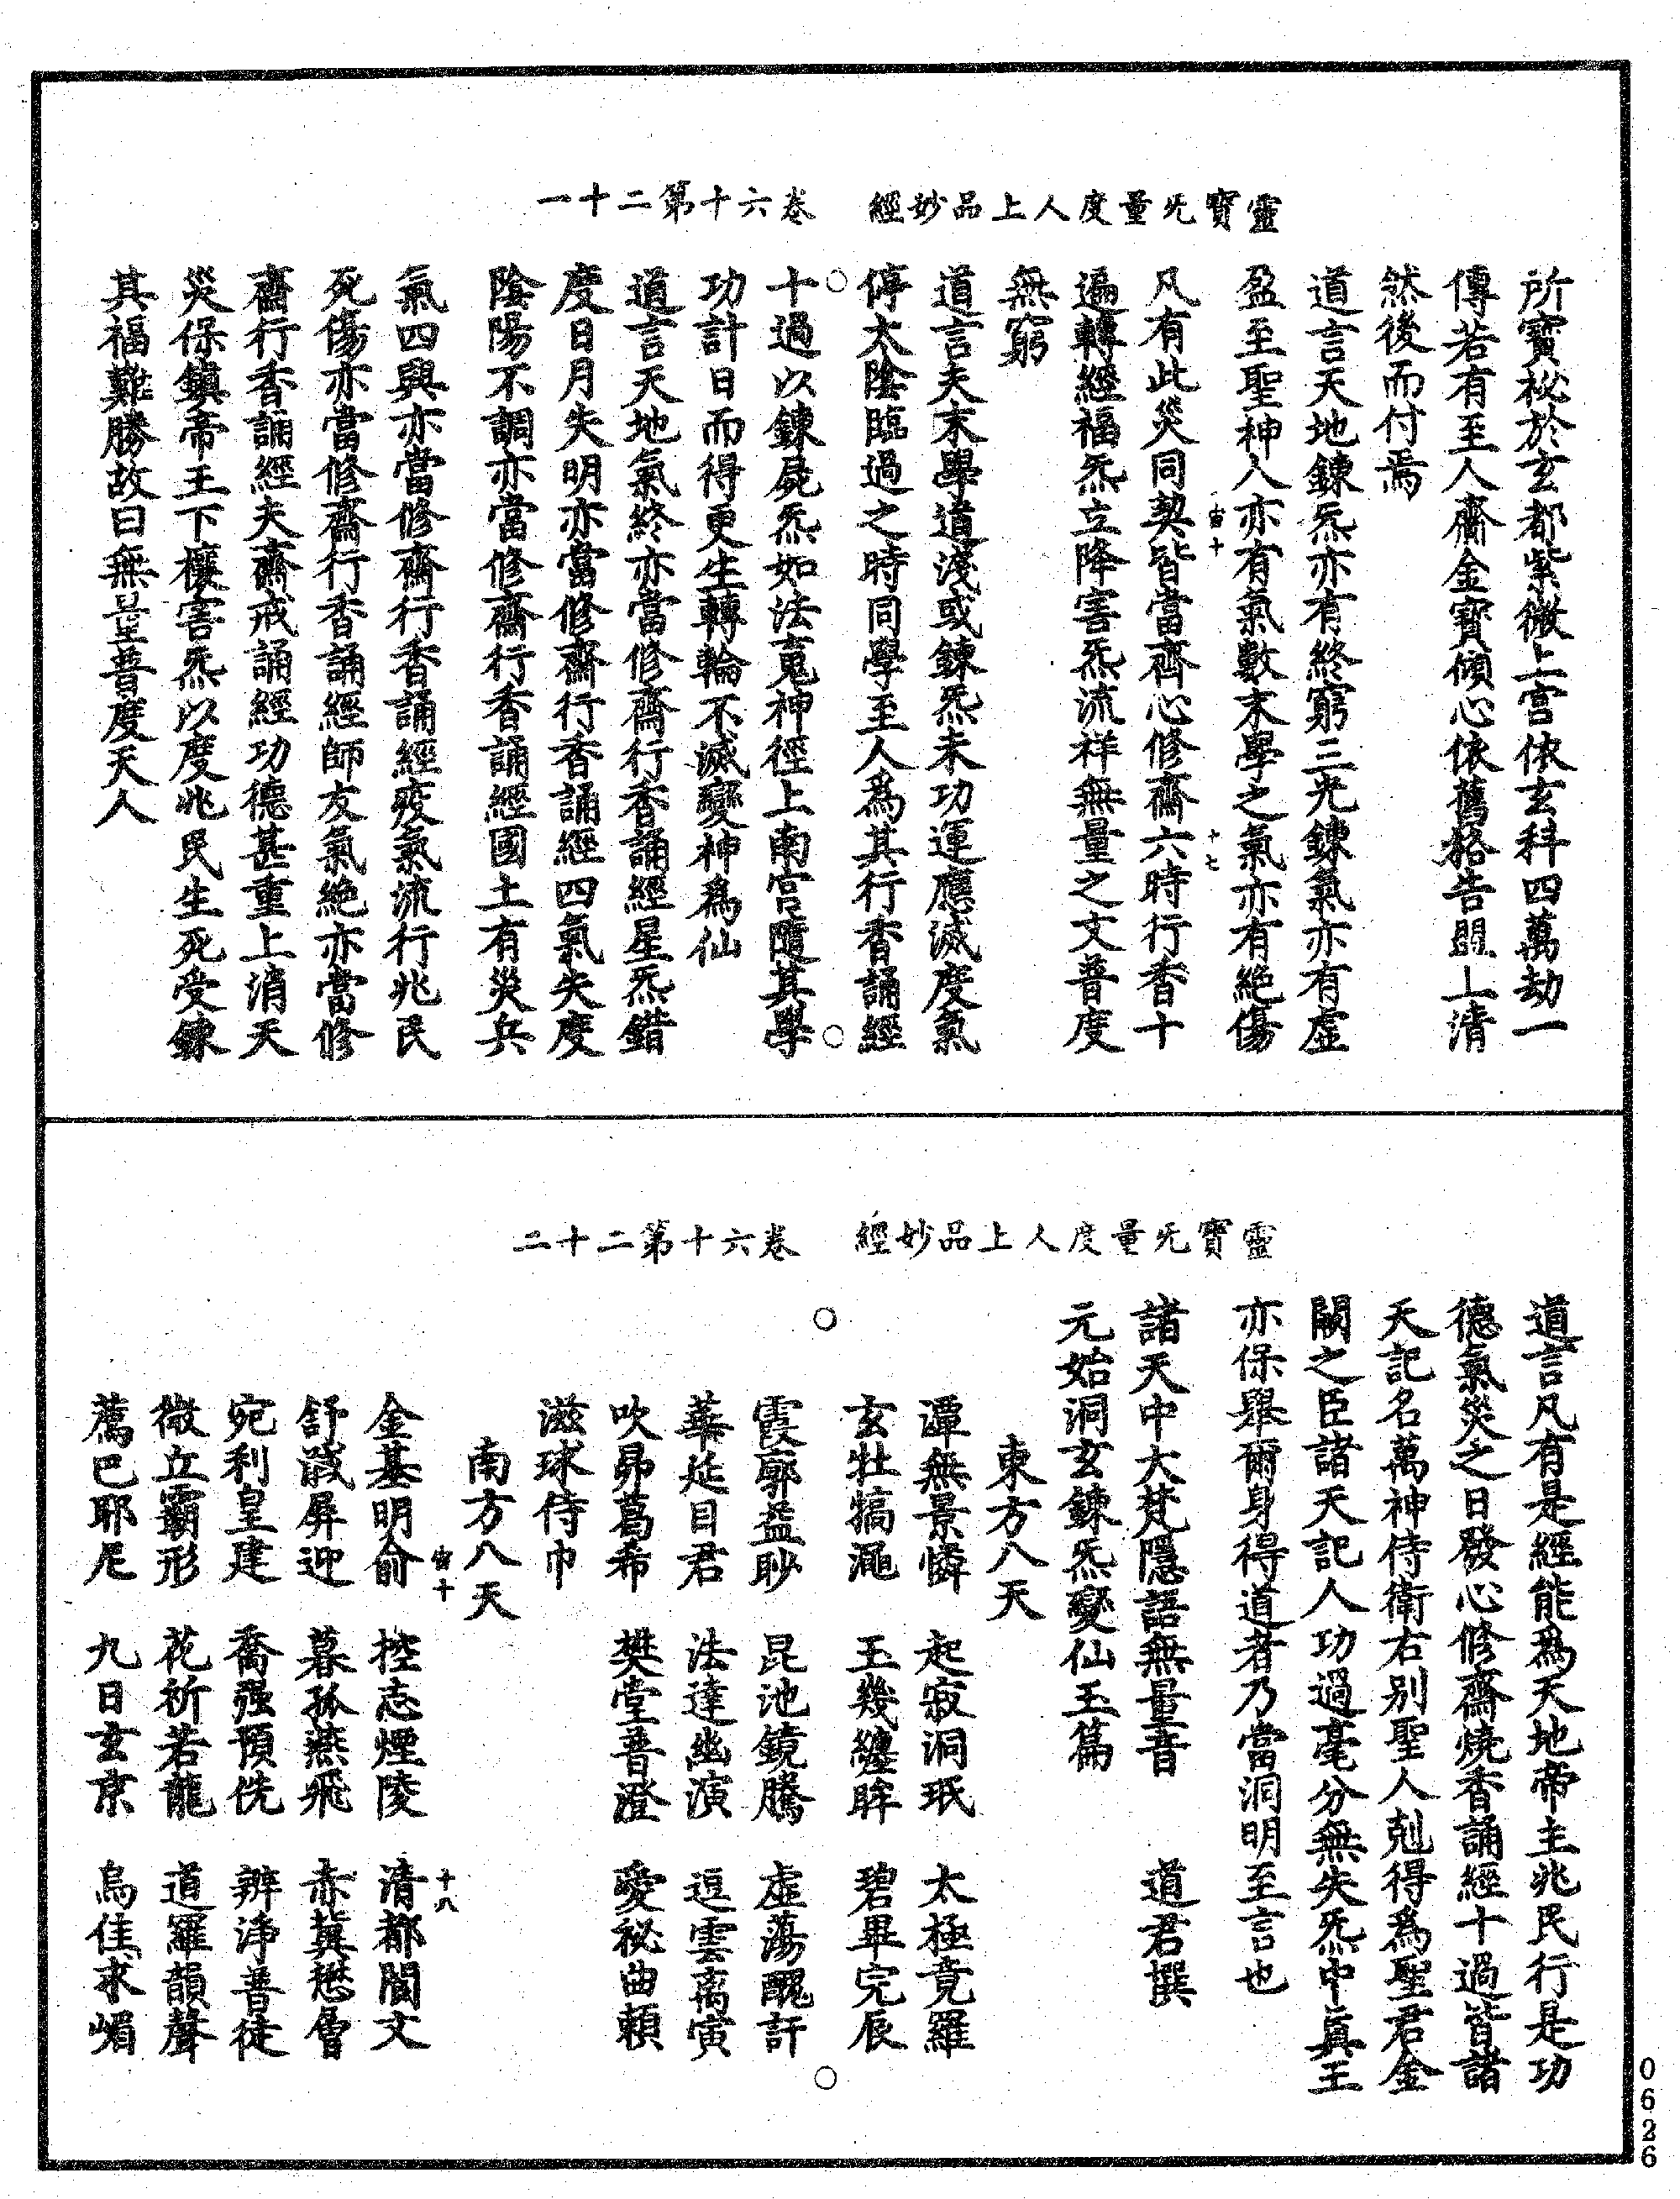 靈寶无量度人上品妙經 卷六十第二十一
所寶祕於玄都紫微上宮依玄科四萬劫一
傳若有至人齎金寶傾心依舊格告盟上清
然後而付焉
道言天地鍊炁亦有終窮三光鍊氣亦有虛
盈至聖神人亦有氣數末學之氣亦有絕傷
凡有此災同契皆當齊心修齋六時行香十
宙十 十七
遍轉經福炁立降害炁流祥無量之文普度
無窮
道言夫末學道淺或鍊炁未功運應滅度氣
停太陰臨過之時同學至人為其行香誦經
十過以鍊屍炁如法䰟神徑上南宮隨其學
功計日而得更生轉輪不滅變神為仙
道言天地氣終亦當修齋行香誦經星炁錯
度日月失明亦當修齋行香誦經四氣失度
陰陽不調亦當修齋行香誦經國土有災兵
氣四興亦當修齋行香誦經疫氣流行兆民
死傷亦當修齋行香誦經師友氣絕亦當修
齋行香誦經夫齋戒誦經功德甚重上消天
災保鎮帝王下禳害炁以度兆民生死受鍊
其福難勝故曰無量普度天人
靈寶无量度人上品妙經 卷六十第二十二
道言凡有是經能為天地帝主兆民行是功
德氣災之日發心修齋燒香誦經十過皆諸
天記名萬神侍衛右別聖人剋得為聖君金
闕之臣諸天記人功過毫分無失炁中眞王
亦保舉爾身得道者乃當洞明至言也
諸天中大梵隱語無量音 道君撰
元始洞玄鍊炁變仙玉篇
東方八天
潭無景憐 起寂洞珉 太極竟羅
玄牡犒澠 王幾纏眸 碧畢完辰
霞廓益眇 昆池鏡騰 虛蕩醜訐
華延目君 法達幽演 逗雲离寅
吹昴葛希 樊堂普澄 愛秘曲賴
滋球侍巾
南方八天
宙十 十八
金基明俞 控志煙陵 清都閶文
舒 屏迎 暮孤燕飛 赤冀懋曾
宛利皇建 喬强預侁 辨淨普徒
微立霸形 花祈若龍 道羅韻聲
薦巴耶尼 九日玄京 烏佳求嵋
0626